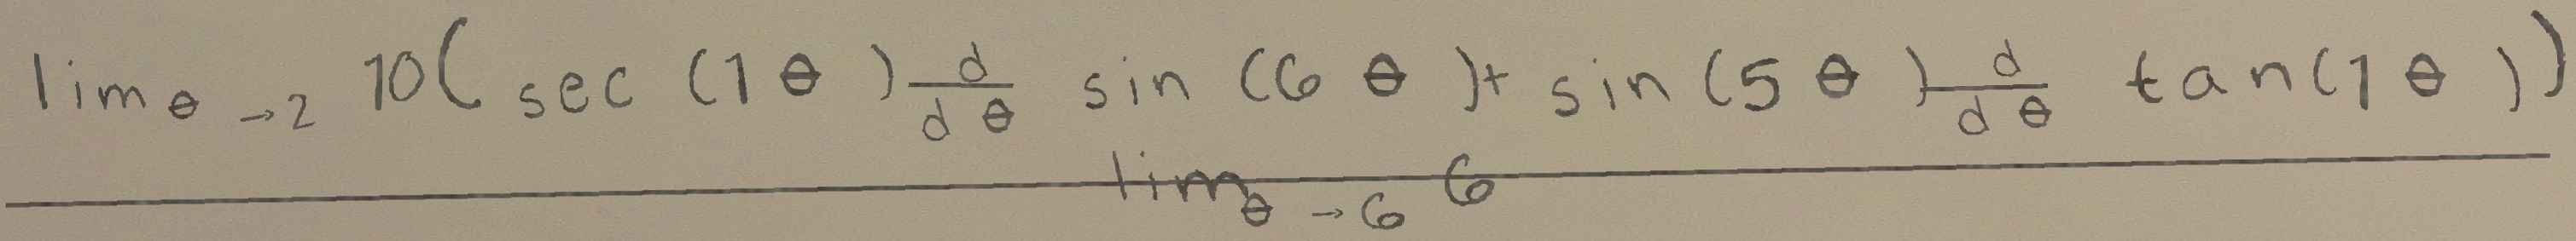 lim θ → 2 10( sec (1 θ ) d/dθ sin (6 θ )+ sin (5 θ ) d/dθ tan(1 θ ))
lim θ → 6 6